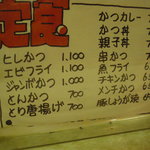 定食
ヒレかつ 1.100
エビフライ 1.100
ジャンボかつ 1.000
とんかつ 700
とり唐揚げ 700
かつカレー
かつ丼
親子丼
串かつ
魚フライ
チキンかつ
メンチかつ
豚しょうが焼